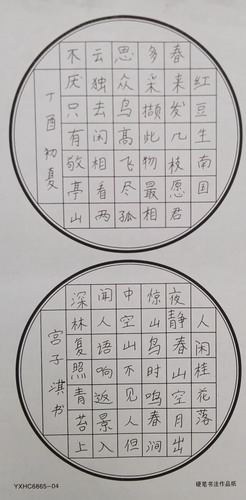 红豆生南国
春来发几枝愿君
多采撷此物最相
思众鸟高飞尽孤
云独去闲相看两
不厌只有敬亭山
丁酉初夏
人闲桂花落
夜静春山空月出
惊山鸟时鸣春涧
中空山不见人但
闻人语响返景入
深林复照青苔上
宫子淇书
YXHC6865-04
硬笔书法作品纸